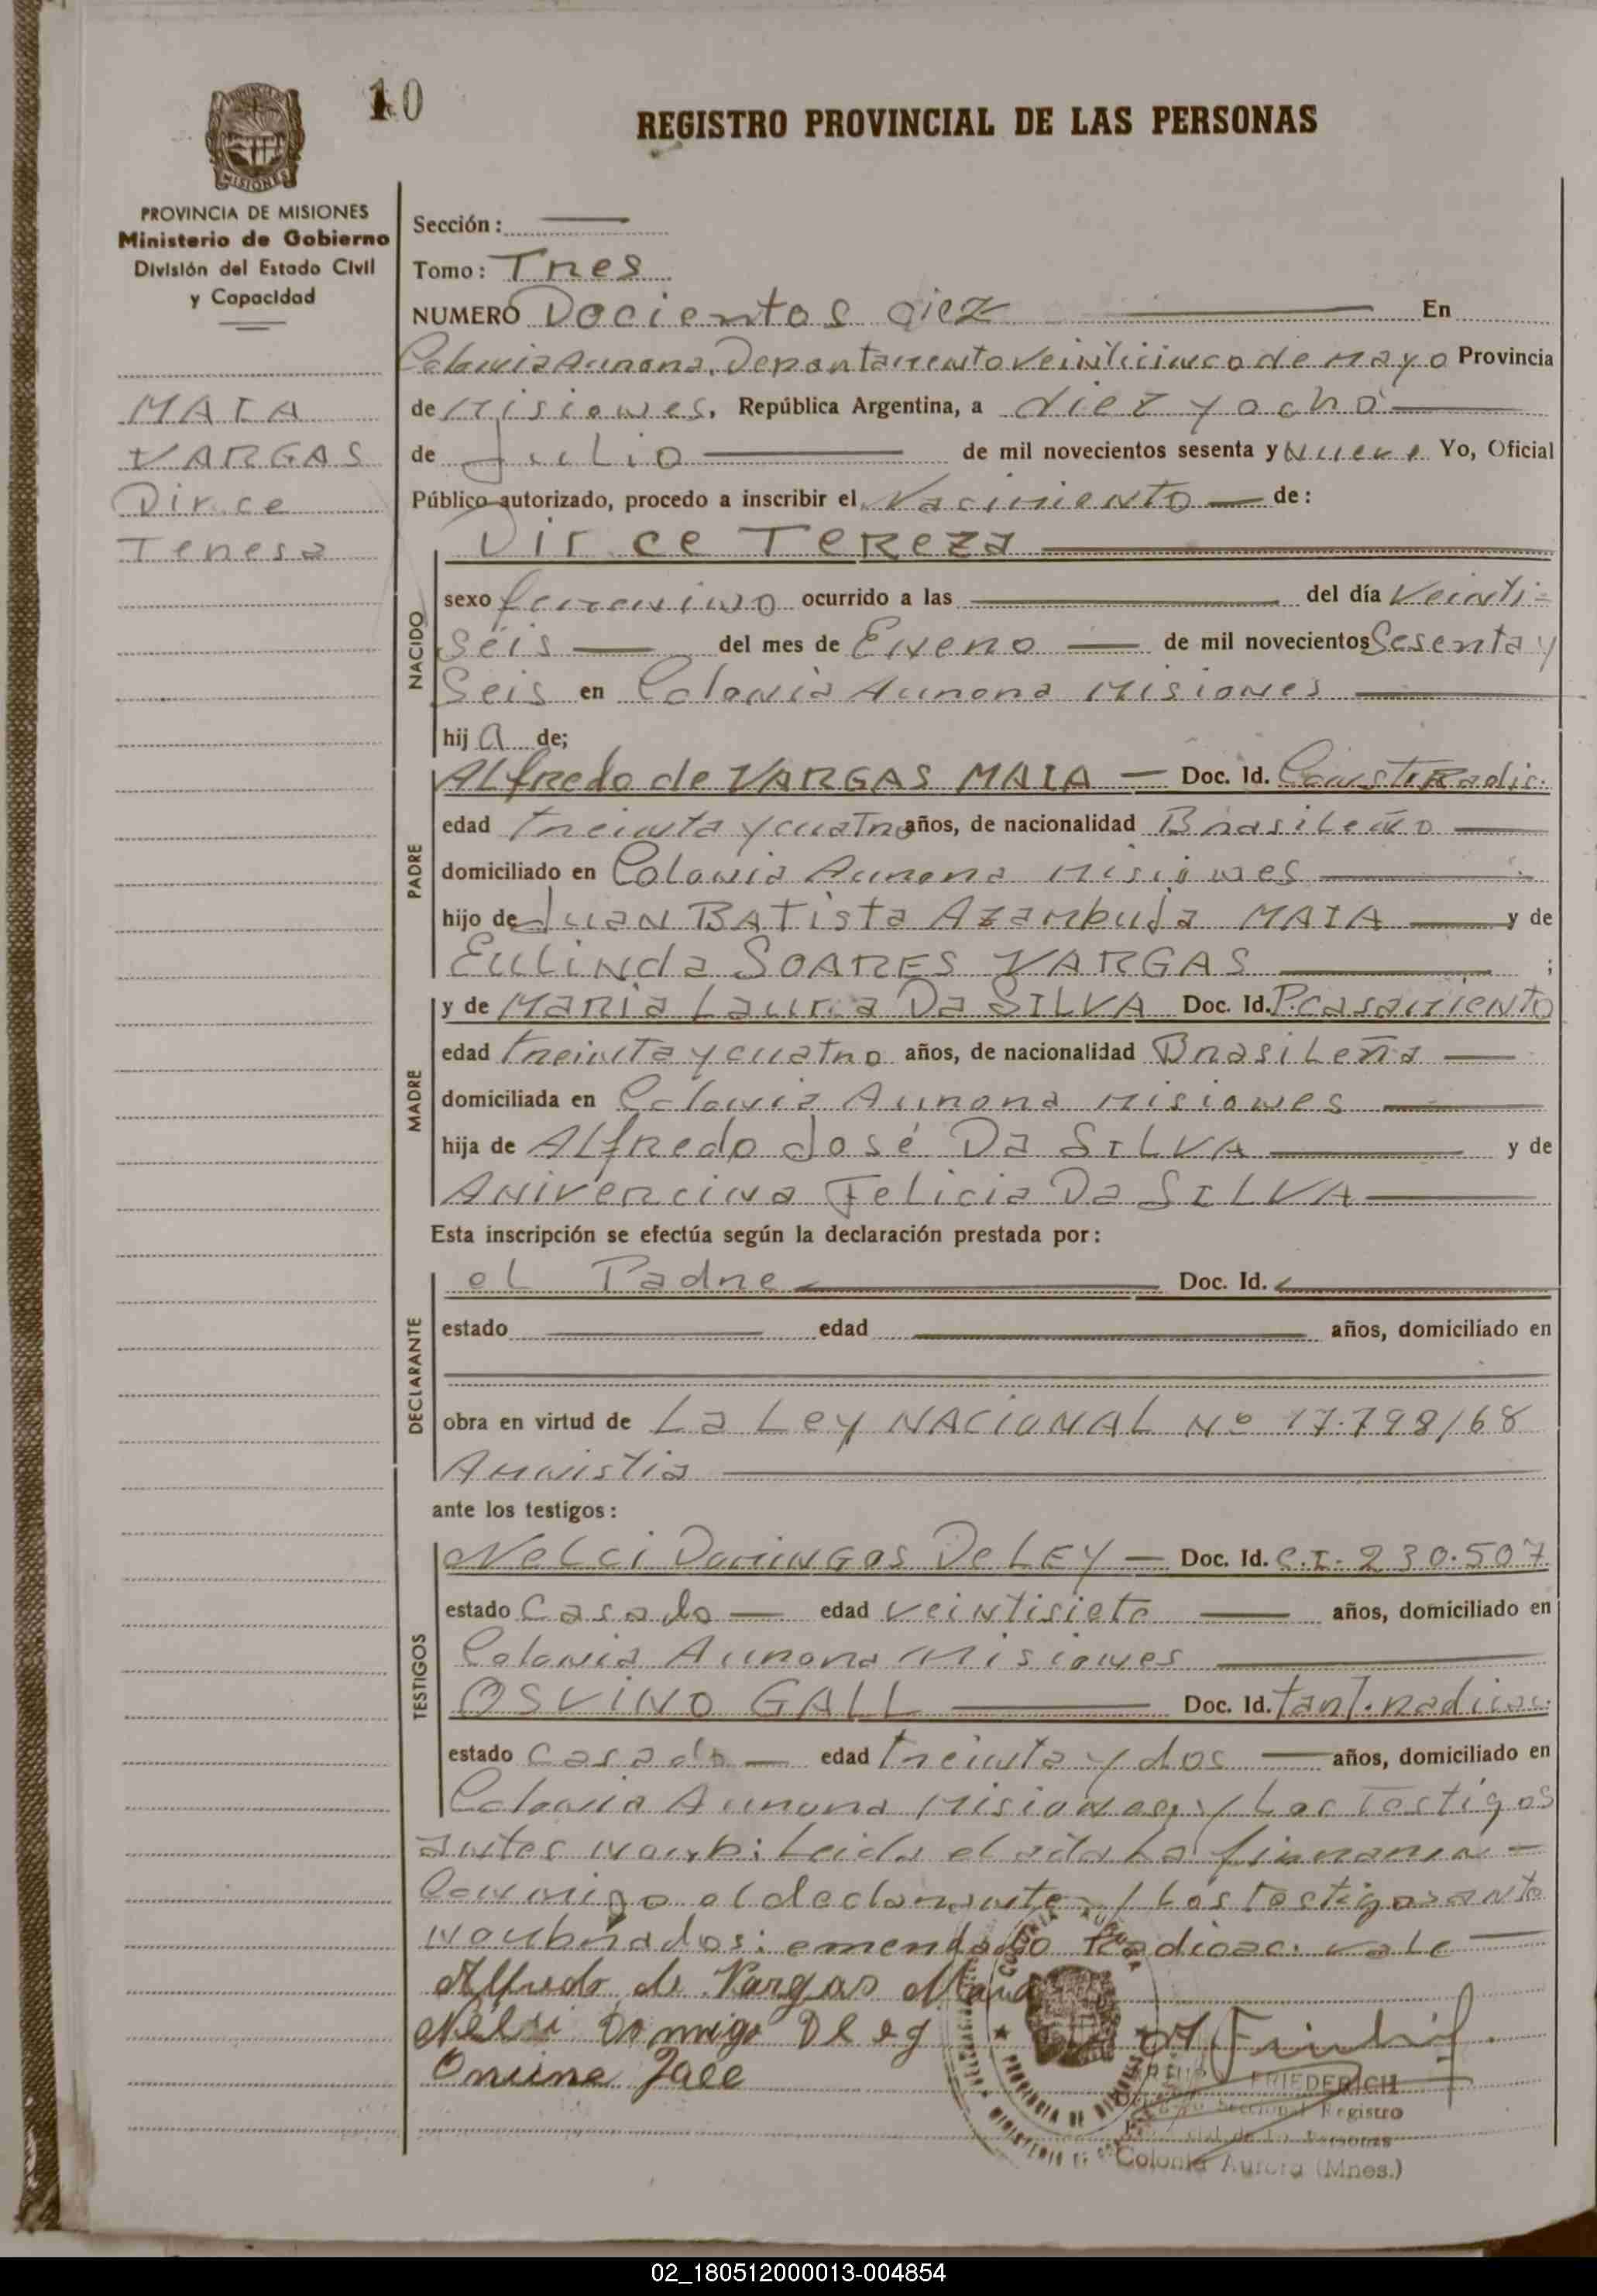 10
REGISTRO PROVINCIAL DE LAS PERSONAS
MISIONES
PROVINCIA DE MISIONES
Ministerio de Gobierno
División del Estado Civil
y Capacidad
MAIA
VARGAS
Dirce
Teresa
Sección:
Tomo: Tres
NUMERO Docientos diez En
Colonia Aurora, Departamento Veinticinco de Mayo Provincia
de Misiones, República Argentina, a diez y ocho
de Julio de mil novecientos sesenta y Nueve Yo, Oficial
Público autorizado, procedo a inscribir el Nacimiento de:
NACIDO
Dirce TEREZA
sexo femenino ocurrido a las del día Veinti=
seis del mes de Enero de mil novecientos Sesenta y
Seis en Colonia Aurora Misiones
hija de;
PADRE
Alfredo de VARGAS MAIA Doc. Id. Const. Radic.
edad treinta y cuatro años, de nacionalidad Brasileño
domiciliado en Colonia Aurora Misiones
hijo de Juan BATista Azambuja MAIA y de
Eulinda SOARES VARGAS ;
MADRE
y de Maria Laurca Da SILVA Doc. Id. P. casamiento
edad treinta y cuatro años, de nacionalidad Brasileña
domiciliada en Colonia Aurora Misiones
hija de Alfredo José Da SILVA y de
Anivercina Felicia Da SILVA
Esta inscripción se efectúa según la declaración prestada por:
DECLARANTE
el Padre Doc. Id.
estado edad años, domiciliado en
obra en virtud de La Ley NACIONAL Nº 17.798/68
Amnistia
ante los testigos:
TESTIGOS
Nelci DOMINGOS De LEY Doc. Id. C.I. 230.507
estado Casado edad veintisiete años, domiciliado en
Colonia Aurora Misiones
OSVINO GALL Doc. Id. tarj. radicac.
estado Casado edad treinta y dos años, domiciliado en
Colonia Aurora Misiones y Los Testigos
antes nomb: Leida el acta La firmaran
Conmigo el declarante y Los testigos ante
nombrados: emendado Radicac: vale
Alfredo de Vargas Maia
Nelsi Domingo Deley
PROVINCIA DE MISIONES
FRIEDERICH
Seccional Registro
de las Personas
Colonia Aurora (Mnes.)
02_180512000013-004854